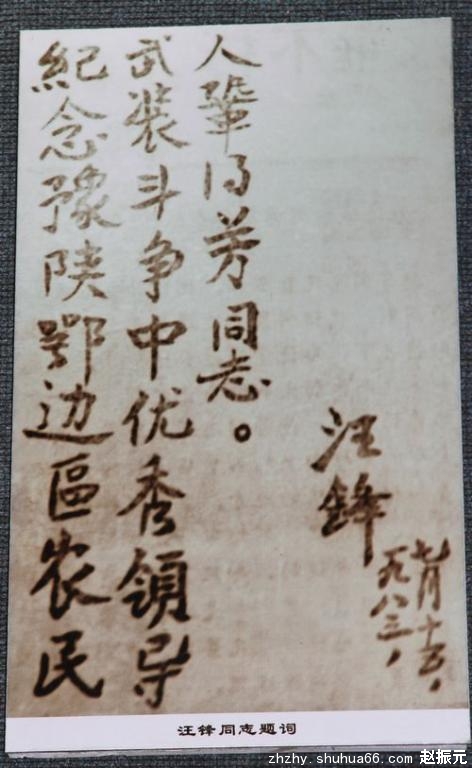 紀念豫陕鄂边區农民
武装斗争中优秀領导
人鞏德芳同志。
汪鋒
一九八三、
七月十五、
汪锋同志题词
zhzhy.shuhua66.com 赵振元